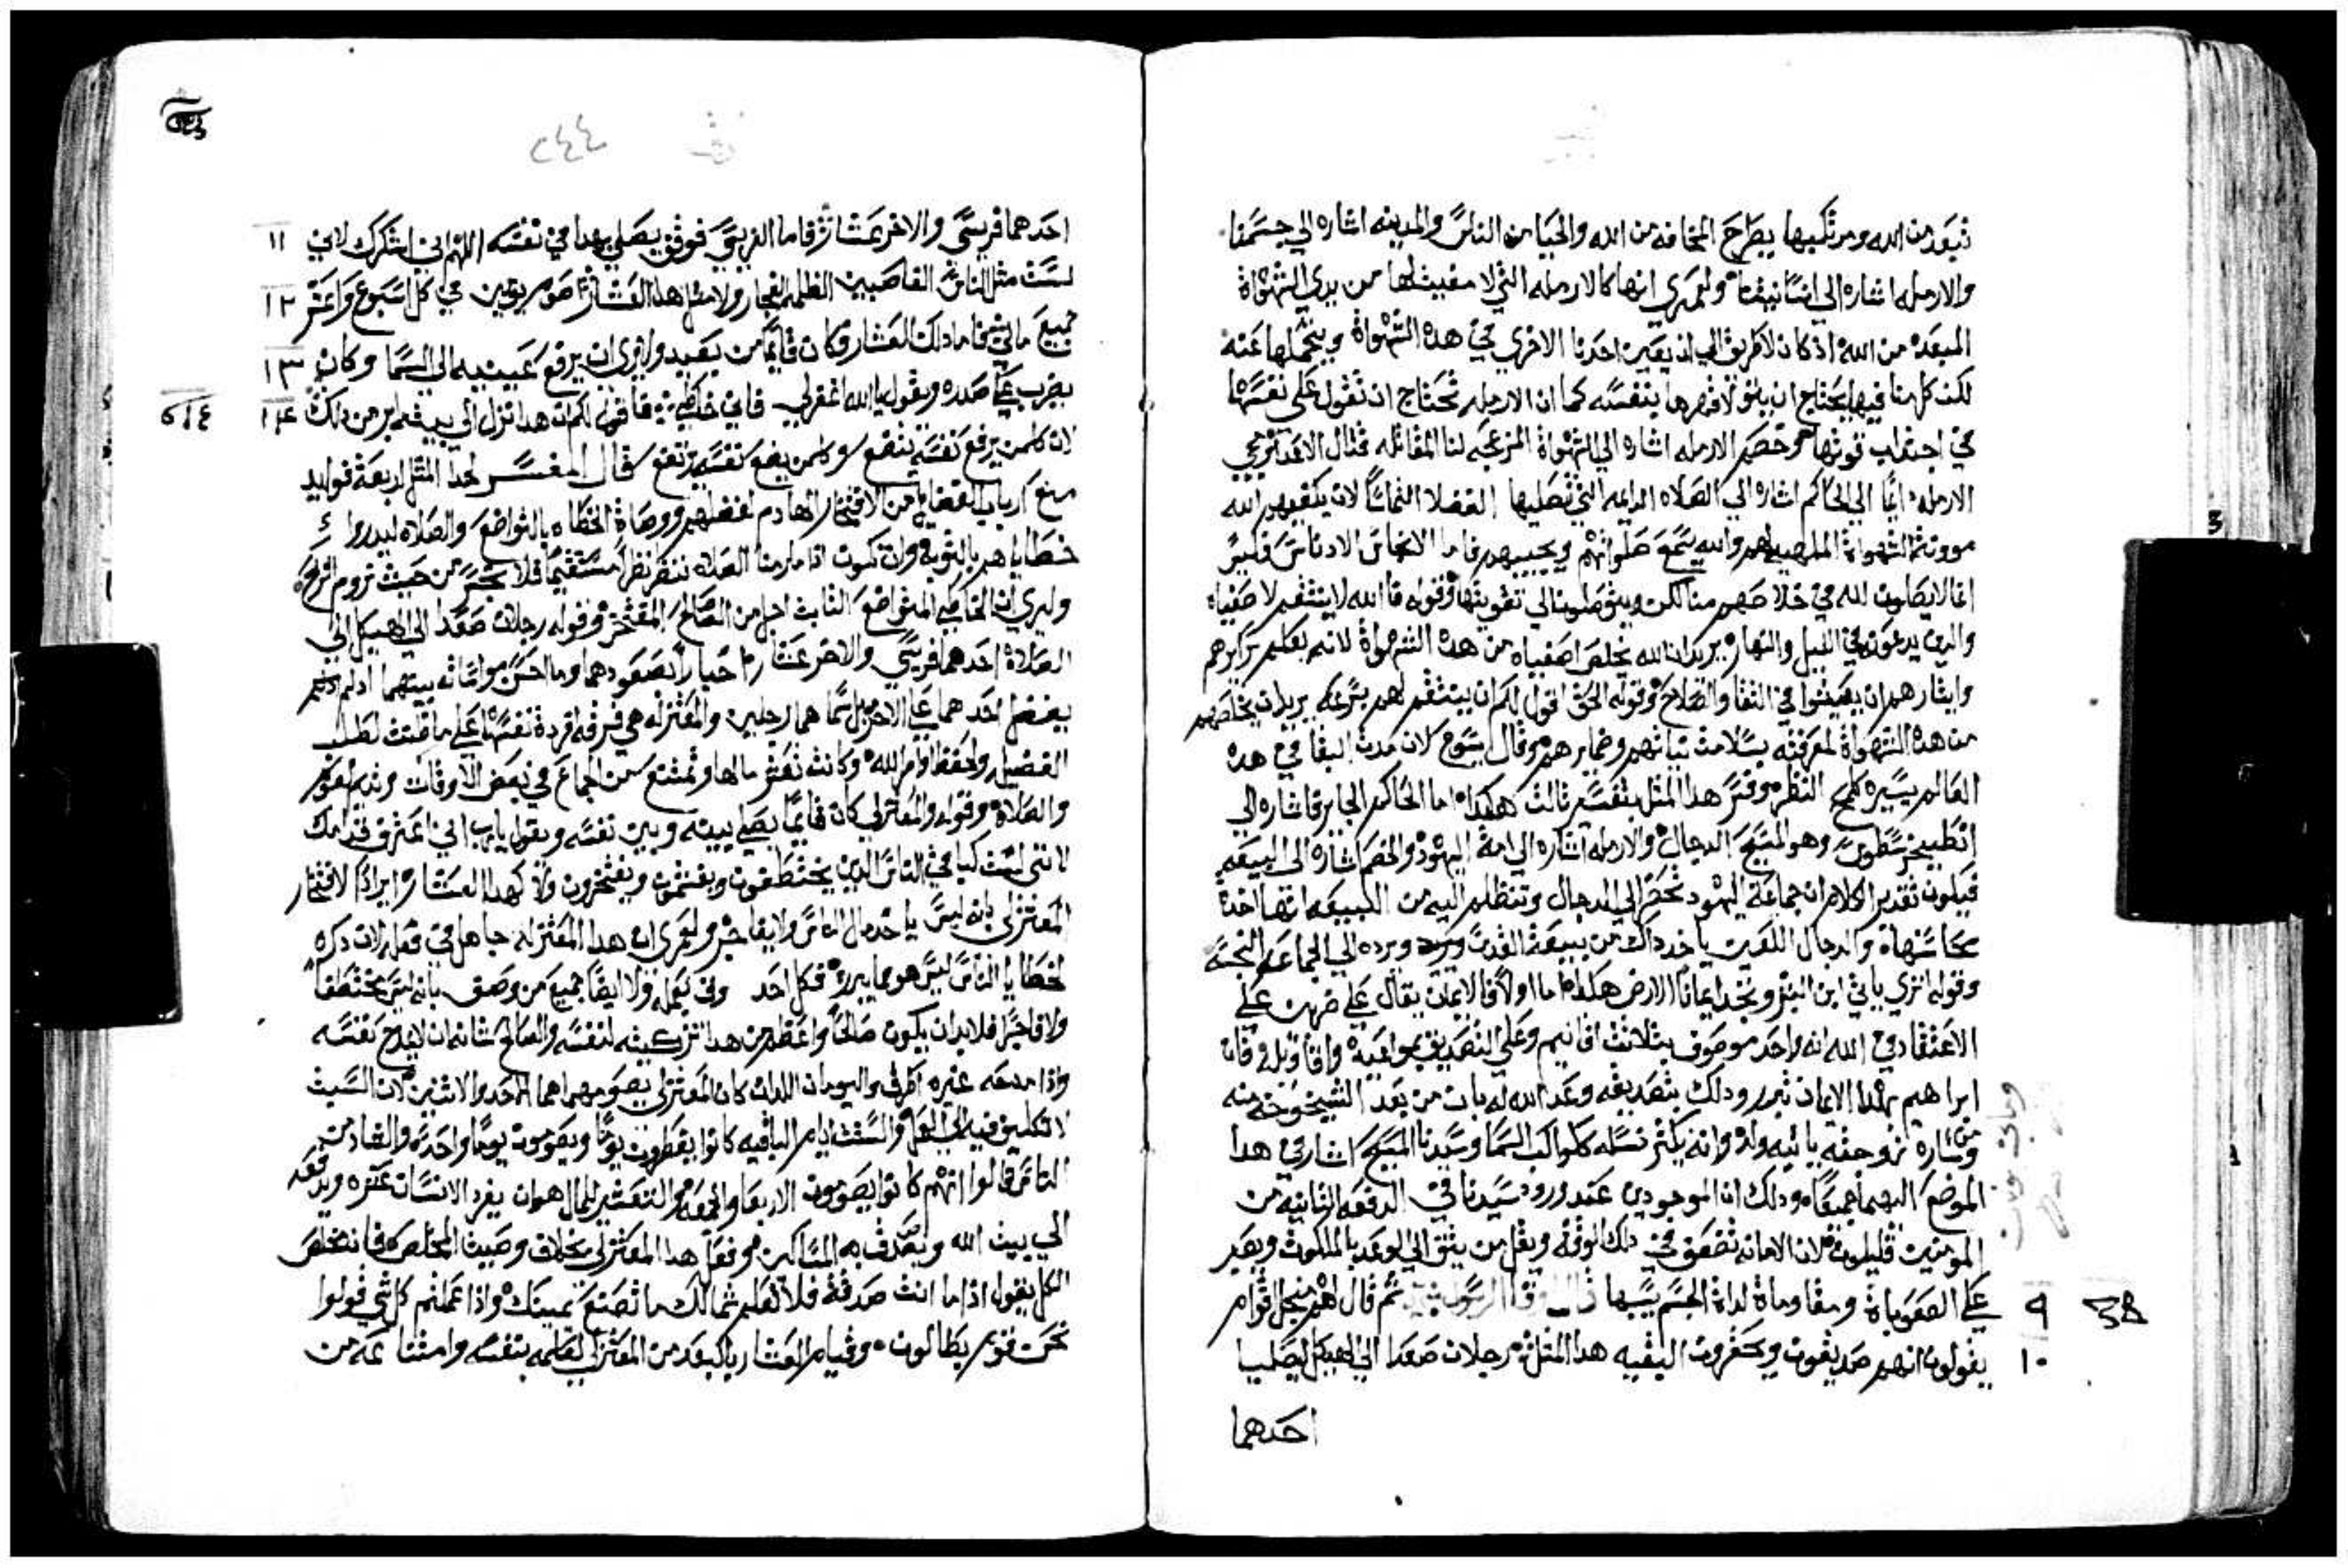 تبعد من الله ومرتكبها يطرح المخافه من الله والحيا من الناس والمدينه اشاره الي جسمنا
والارمله اشاره الي انسانيتنا ولعمري انها كالارمله التي لا مغيث لها من يدي الشهواة
المبعده من الله اذ كان لا طريق الي ان يعين احدنا الاخري في هده الشهواة ويتحملها عنه
لكن كل منا فيها يحتاج ان يتولا قهرها بنفسه كما ان الارمله تحتاج ان تعول على نفسها
في اجتلاب قوتها وخصم الارمله اشاره الي الشهواة المزعجه لنا المقاتله فتال الاعدا تزيجي
الارمله ايما الي الحاكم اشاره الي الصلاه الدايمه التي تصليها الفضلا التماسا لان يكفيهم الله
موونة الشهواة الملهيه لهم والله يسمع صلواتهم ويجيبهم فاما الانجاس الادناس فليس
انما لا يطلبون لله في خلاصهم منا لكن ويتوصلون الي تقويتها وقوله فالله لا ينتقم لاصفياه
والدين يدعونه في الليل والنهار يريد ان الله يخلص اصفياه من هده الشهواة لانه بعلم سرايرهم
وايثارهم ان يعيشوا في النقا والصلاح وقوله الحق اقول لكم ان ينتقم لهم بسرعه يريد ان يخلصهم
من هده الشهواة لمعرفته بسلامة نياتهم وضمايرهم وقال بسرع لان مدة البقا في هده
العالم يسيره كلمح النظر وفسر هدا المثل بتفسير ثالث هكدا اما الحاكم الجاير فاشاره الي
انطيخرسطوس وهو المسيح الدجال والارمله اشاره الي امة اليهود والخصم اشاره الي البيعه
فيكون تقدير الكلام ان جماعة اليهود تحضر الي الدجال وتتظلم اليه من البيعه انها اخدة
محاسنهاة والدجال اللعين ياخد داك من بيعة القدس ويرده الي الجماعه النجسه
وقوله اتري ياتي ابن البشر ويجد ايمانا الارض هكدا اما اولا فالايمان يقال علي ضربين علي
الاعتقاد في الله انه واحد موصوف بثلاثة اقانيم وعلي التصديق بمواعيده واقاويله فان
ابراهيم بهدا الايمان تبرر ودلك بتصديقه وعد الله له بان من بعد الشيخوخه منه
ومن ساره زوجته ياتيه ولد وانه يكثر نسله كلواكب السما وسيدنا المسيح اشار في هدا
الموضع اليهما جميعا ودلك ان الموجودين عند ورود سيدنا في الدفعه الثانيه من
المومنين قليلون لان الامانه تضعف في دلك الوقت ويقل من يثق الي الوعد بالملكوت ويصبر
علي الصعوباة ومقاوماة لداة الجسم بسببها قال لوقا الرسول ثم قال لهم من اجل اقوام ٩
يقولون انهم صديقون ويحقرون البقيه هدا المثل رجلان صعدا الي الهيكل ليصليا ١٠
احدهما
٢٤٤
احدهما فريسي والاخر عشار فاما الفريسي فوقف يصلي بهدا في نفسه اللهم اني اشكرك لاني ١١
لست مثل الناس الغاصبين الظلمه الفجار ولا مثل هدا العشار اصوم يومين في كل اسبوع واعشر ١٢
جميع مالي فاما دلك العشار وكان قايما من بعيد ولا يري ان يرفع عينيه الي السما وكان ١٣
يضرب علي صدره ويقول يا الله اغفر لي فاني خاطي فاقول لكم ان هدا نزل الي بيته ابر من دلك ١٤
لان كل من يرفع نفسه يتضع وكل من يضع نفسه يرتفع قال المفسر لهدا المثل اربعة فوايد
منع ارباب الفضايل من الافتخار الهادم لفضلهم ووصاة الخطاه بالتواضع والصلاه ليدروا
خطاياهم بالتوبة وان تكون ادا ما رمنا الصلاه نتفكر نظرا مستقيما فلا نخسر من حيث نروم الربح
وليري ان الخاطي المتواضع التايب اجل من الصالح المفتخر وقوله رجلان صعدا الي الهيكل الي
الصلاة احدهما فريسي والاخر عشار اخبارا بصعودهما وما احسن مواساته بينهما اد لم
يفضل احدهما علي الاخر بل سماهما رجلين والمعتزله هي فرقه افردة نفسها علي ما قلت لطلب
الفضيله ولحفظ اوامر الله وكانت تعشر مالها وتمتنع من الجماع في بعض الاوقات
والصلاة وقوله والمعتزلي كان قايما يصلي بينه وبين نفسه ويقول يارب اني اعترف قدامك
لانني لست كباقي الناس الدين يختطفون ويغشمون ويفتخرون ولا كهدا العشار ايراد الافتخار
المعتزلي بانه ليس ياخد مال الناس ولا يفاخر ولعمري ان هدا المعتزله جاهل في فعله لان دكره
لخطايا الناس ليس هو مما يبرره فكل احد وفي عمله ولا ايضا جميع من وصف بانه ليس مختطفا
ولا فاجرا فلا بد ان يكون صالحا واعظم من هدا تزكيته لنفسه والصالح شانه ان لا يمدح نفسه
وادا مدحه غيره اطرق واليومان اللدان كان المعتزلي يصومهما هما الاحد والاثنين لان السبت
لا تكليف فيه الي العمل والستت ايام الباقيه كانوا يفطرون يوما ويصومون يوما واحده والصاد من
الناس قالوا انهم كانوا يصومون الاربعا والجمعه والتعشير للمال هو ان يفرد الانسان عشره ويدفعه
الي بيت الله ويصدق به المساكين وفعل هدا المعتزلي بخلاف وصيت المخلص فان مخلص
الكل يقول ادا ما انت صدقة فلا تعلم شمالك ما تصنع يمينك وادا عملتم كل شي قولوا
نحن قوم بطالون وقيام العشار بالبعد من المعتزلي لعلمه بنفسه وامتناعه من